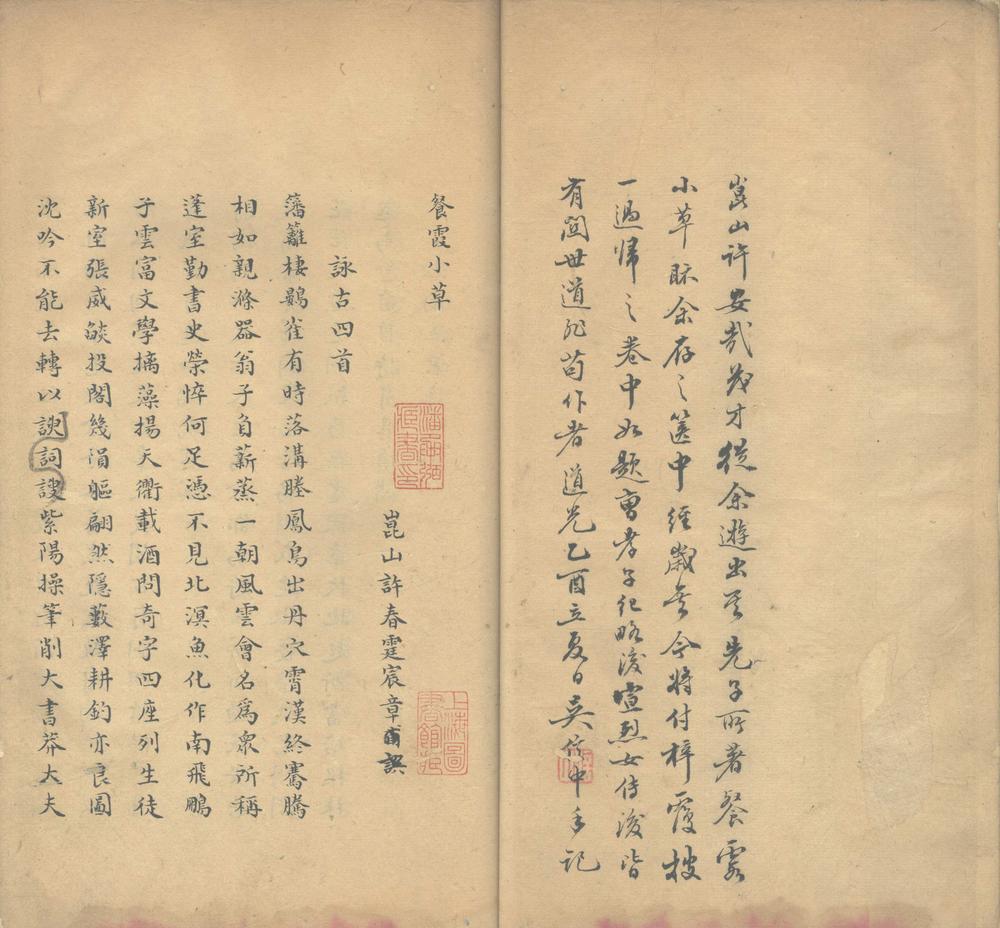 崑山許安哉茂才從余遊出其先子所著餐霞
小草眎余存之篋中經歲矣今將付梓覆校
一過歸之卷中如題曹孝子紀略後壇烈女傳後皆
有關世道非苟作者道光乙酉立夏日吳信中手記
餐霞小草
崑山許春霆宸章甫譔
詠古四首
藩籬棲鷃雀有時落溝塍鳳鳥出丹穴霄漢終騫騰
相如親滌器翁子自薪蒸一朝風雲會名爲衆所稱
蓬室勤書史榮悴何足憑不見北溟魚化作南飛鵬
子雲富文學摛藻揚天衢載酒問奇字四座列生徒
新室張威燄投閣幾陨軀翩然隱藪澤耕釣亦良圖
沈吟不能去轉以諛詞諛紫陽操筆削大書莽大夫
上海圖書館藏